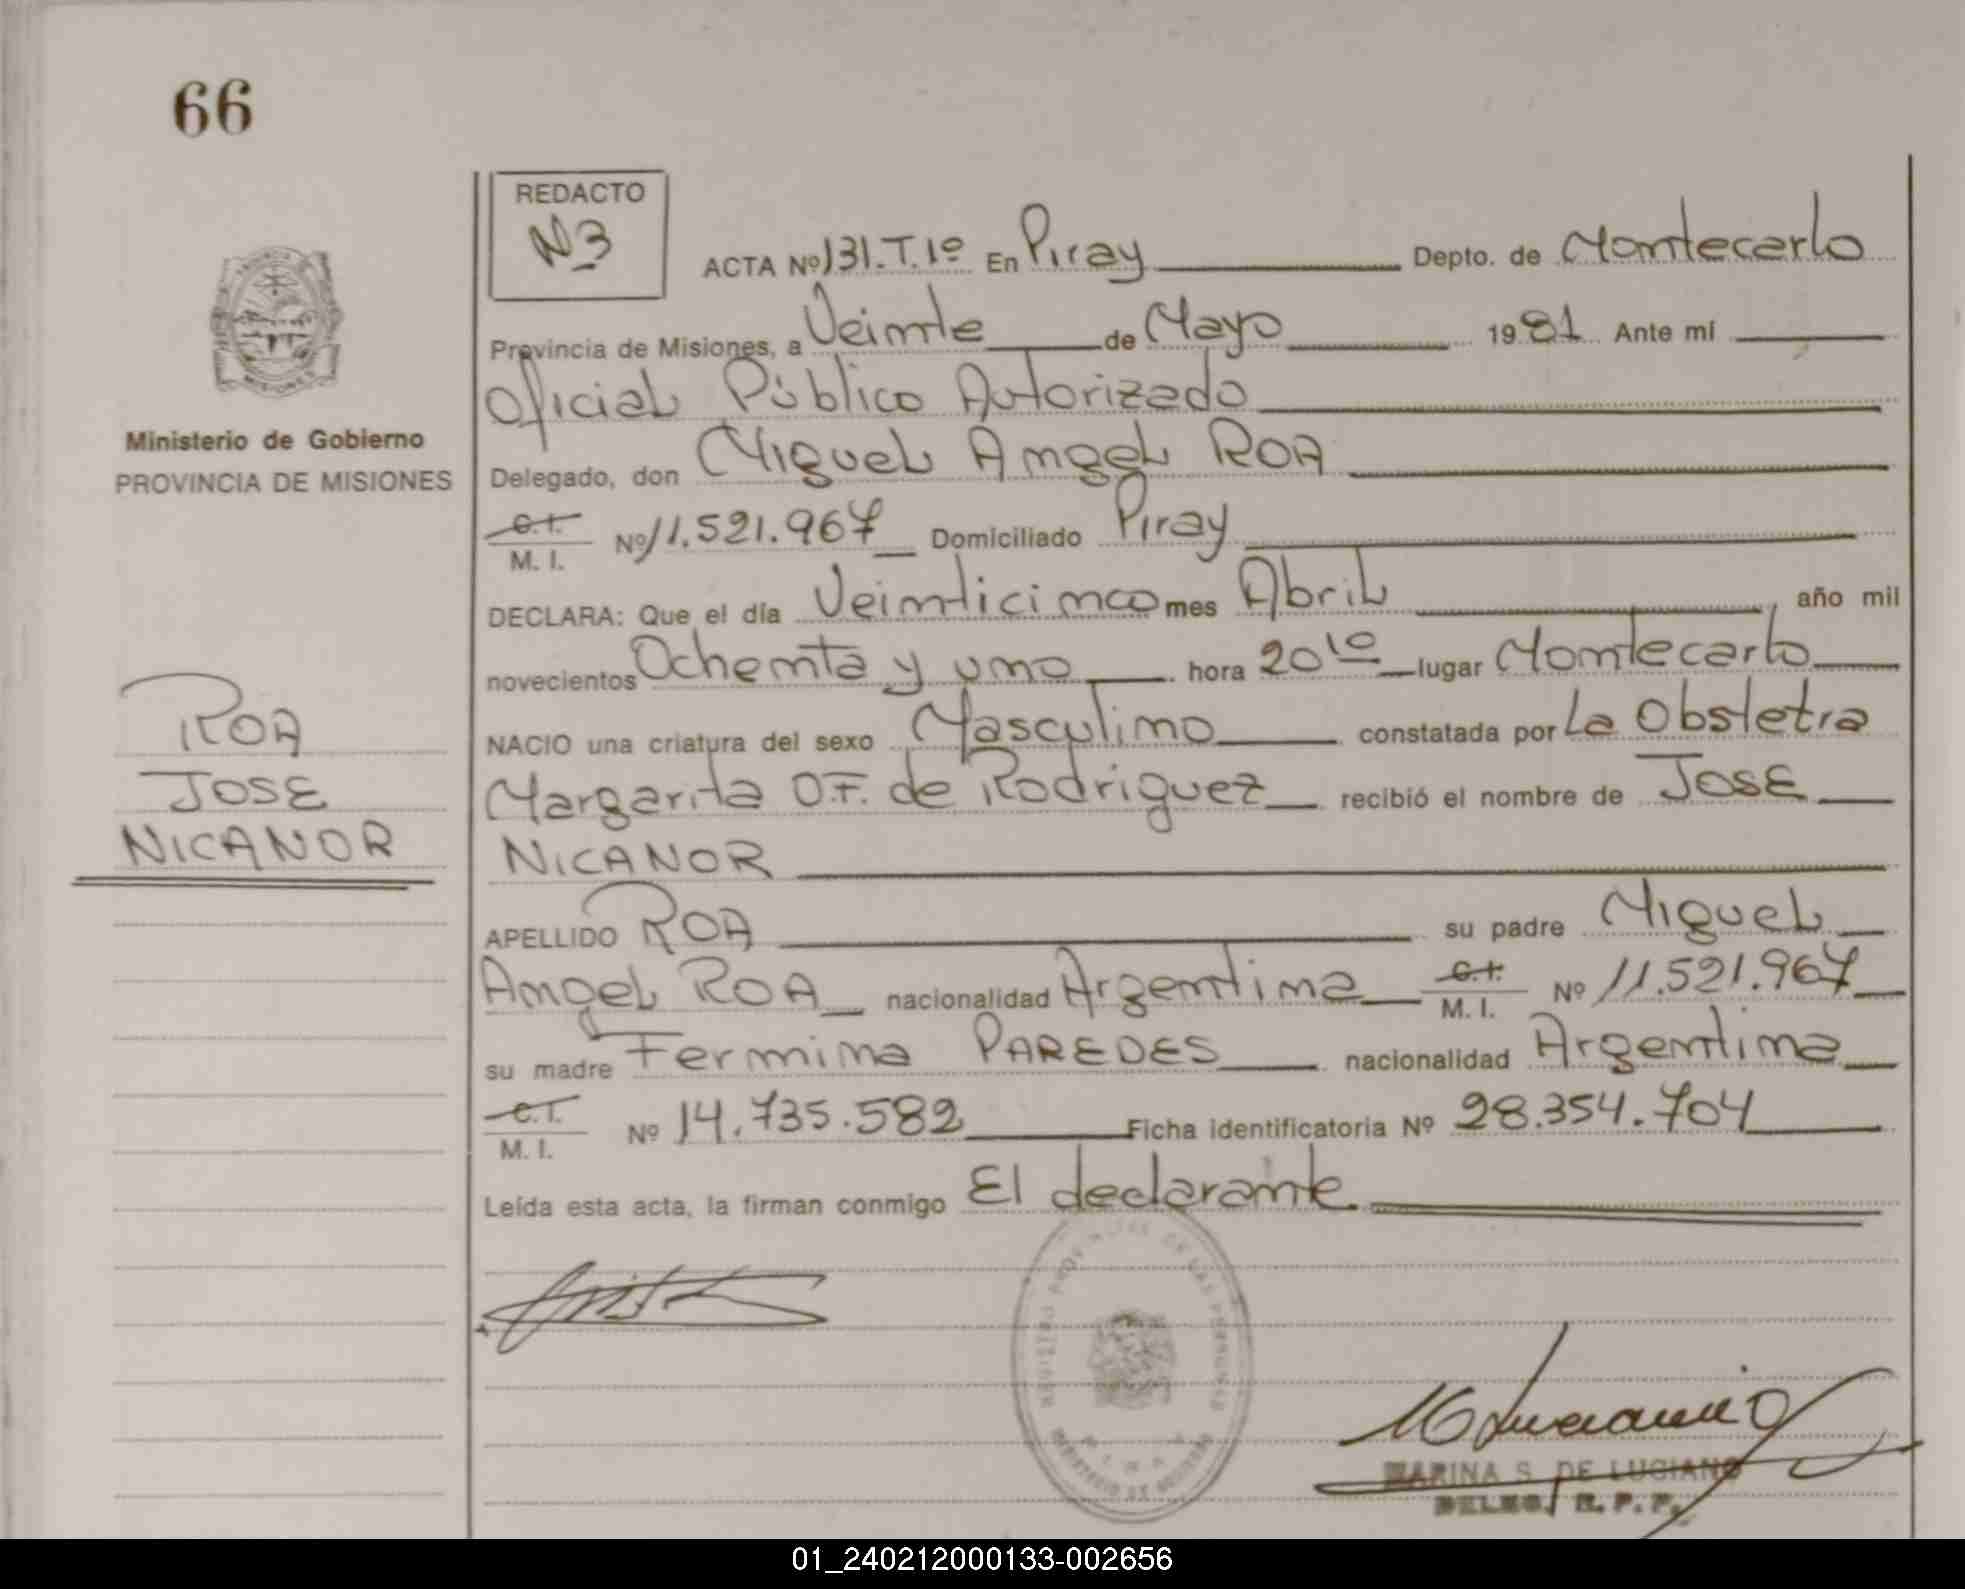 66
REDACTO
N3
ACTA Nº 131.T.1º En Piray Depto. de Montecarlo
Provincia de Misiones, a Veinte de Mayo 1981 Ante mí
Oficial Público Autorizado
Ministerio de Gobierno
PROVINCIA DE MISIONES
Delegado, don Miguel Angel ROA
C.I.
M. I. Nº 11.521.967 Domiciliado Piray
DECLARA: Que el día Veinticinco mes Abril, año mil
novecientos Ochenta y uno hora 20 10 lugar Montecarlo
NACIO una criatura del sexo Masculino constatada por La Obstetra
Margarita O.F. de Rodriguez recibió el nombre de JOSE
NICANOR
ROA
JOSE
NICANOR
APELLIDO ROA su padre Miguel
Angel ROA nacionalidad Argentina C.I.
M. I. Nº 11.521.967
su madre Fermina PAREDES nacionalidad Argentina
C.I.
M. I. Nº 14.735.582 Ficha identificatoria Nº 28.354.704
Leída esta acta, la firman conmigo El declarante
MARINA S. DE LUCIANO
DELEG. R. P. P.
01_240212000133-002656